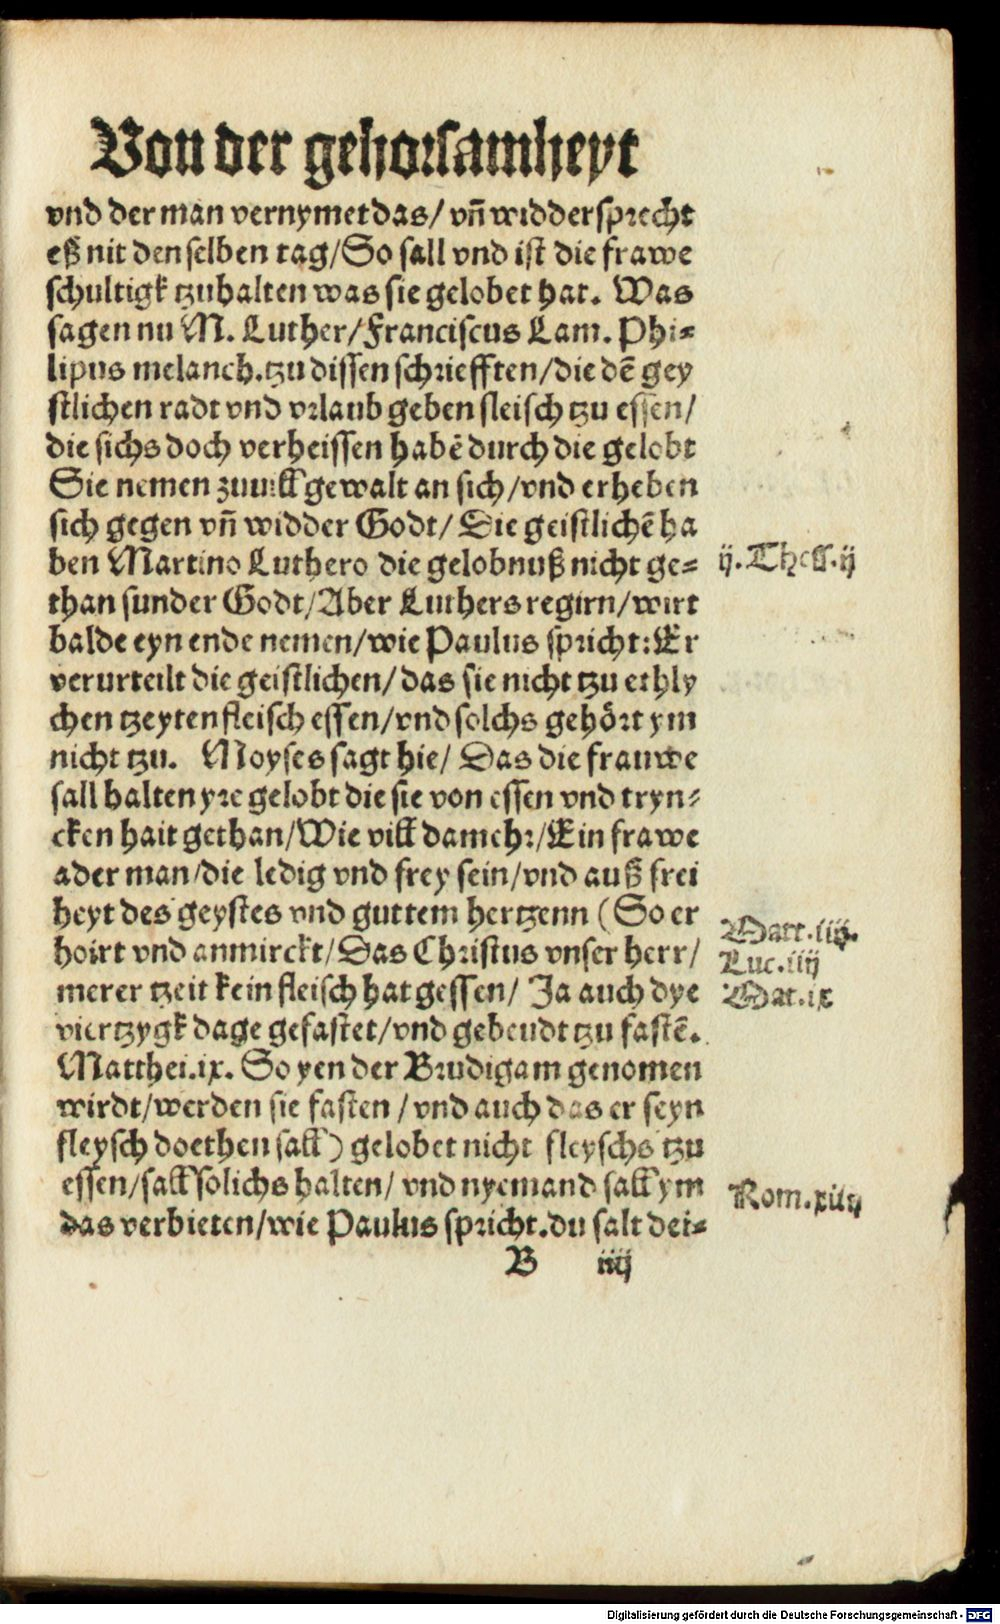 Von der gehorsamheyt
vnd der man vernymet das/ vñ widdersprecht
eß nit den selben tag/ So sall vnd ist die frawe
schultigk tzuhalten was sie gelobet hat. Was
sagen nu M. Luther/ Franciscus Lam. Phi-
lipus melanch. tzu dissen schriefften/ die dē gey
stlichen radt vnd vrlaub geben fleisch tzu essen/
die sichs doch verheissen habē durch die gelobt
Sie nemen zuuill gewalt an sich/ vnd erheben
sich gegen vñ widder Godt/ Die geistlichē ha
ben Martino Luthero die gelobnuß nicht ge-
ij. Thess. ij
than sunder Godt/ Aber Luthers regirn/ wirt
balde eyn ende nemen/ wie Paulus spricht: Er
verurteilt die geistlichen/ das sie nicht tzu erhly
chen tzeyten fleisch essen/ vnd solchs gehört ym
nicht tzu. Moyses sagt hie/ Das die frauwe
sall halten yre gelobt die sie von essen vnd tryn-
cken hait gethan/ Wie vill damehr/ Ein frawe
ader man/ die ledig vnd frey sein/ vnd auß frei
heyt des geystes vnd guttem hertzenn (So er
Matt. iiij.
hoirt vnd anmirckt/ Das Christus vnser herr/
Luc. iiij
merer tzeit kein fleisch hat gessen/ Ja auch dye
Mat. ix
viertzygk dage gefastet/ vnd gebeudt tzu fastē.
Matthei. ix. So yen der Brudigam genomen
wirdt/ werden sie fasten/ vnd auch das er seyn
fleysch doethen sall) gelobet nicht fleyschs tzu
essen/ sall solichs halten/ vnd nyemand sall ym
Rom. xiiij
das verbieten/ wie Paulus spricht. du salt dei-
B iiij
Digitalisierung gefördert durch die Deutsche Forschungsgemeinschaft - DFG